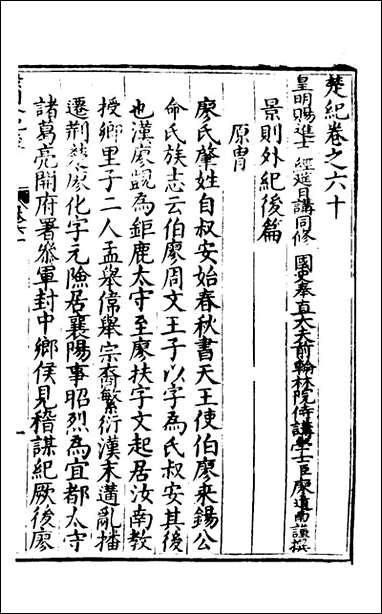 楚紀卷之六十
皇明賜進士 經筵日講同修 國史奉直大夫前翰林院侍講學士臣廖道南謹撰
景則外紀後篇
原冑
廖氏肇姓自叔安始春秋書天王使伯廖来錫公
命氏族志云伯廖周文王子以字為氏叔安其後
也漢廖覬為鉅鹿太守至廖扶字文起居汝南教
授鄉里子二人孟舉偉舉宗裔繁衍漢末遘亂播
遷荆廖化字元險居襄陽事昭烈為宜都太守
諸葛亮開府署叅軍封中鄉侯見稽謀紀厥後廖